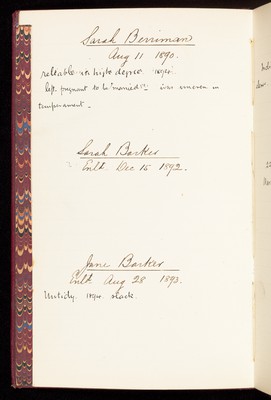 Sarah Berriman
Aug 11 1890.
reliable to high degree
left pregnant to be married?? was uneven in
temperament -
Sarah Barker
Enlt Dec 15 1892.
Jane Barker
Enlt Aug 28 1893.
Untidy. slack.